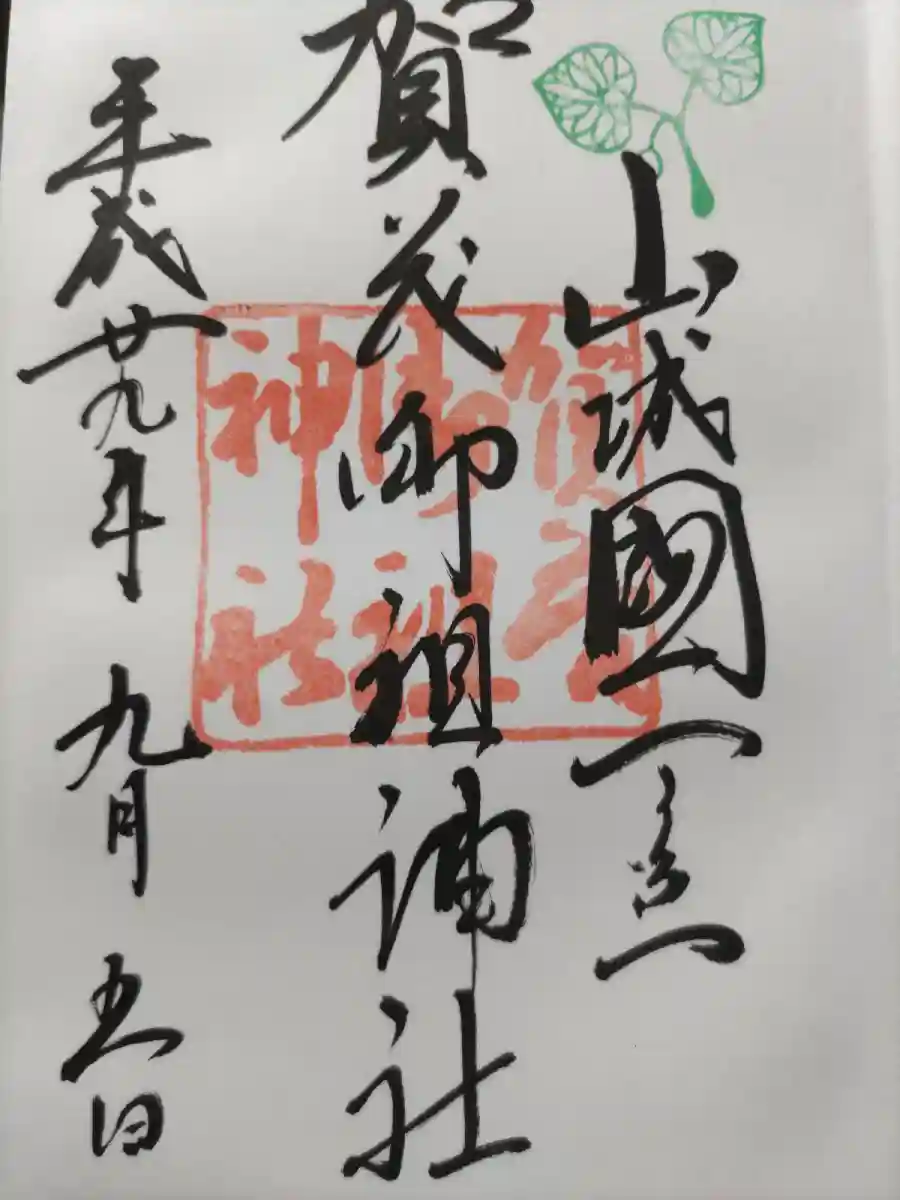 山城國一之宮
賀茂御祖神社
平成廿九年 九月 五日
賀茂
御祖
神社